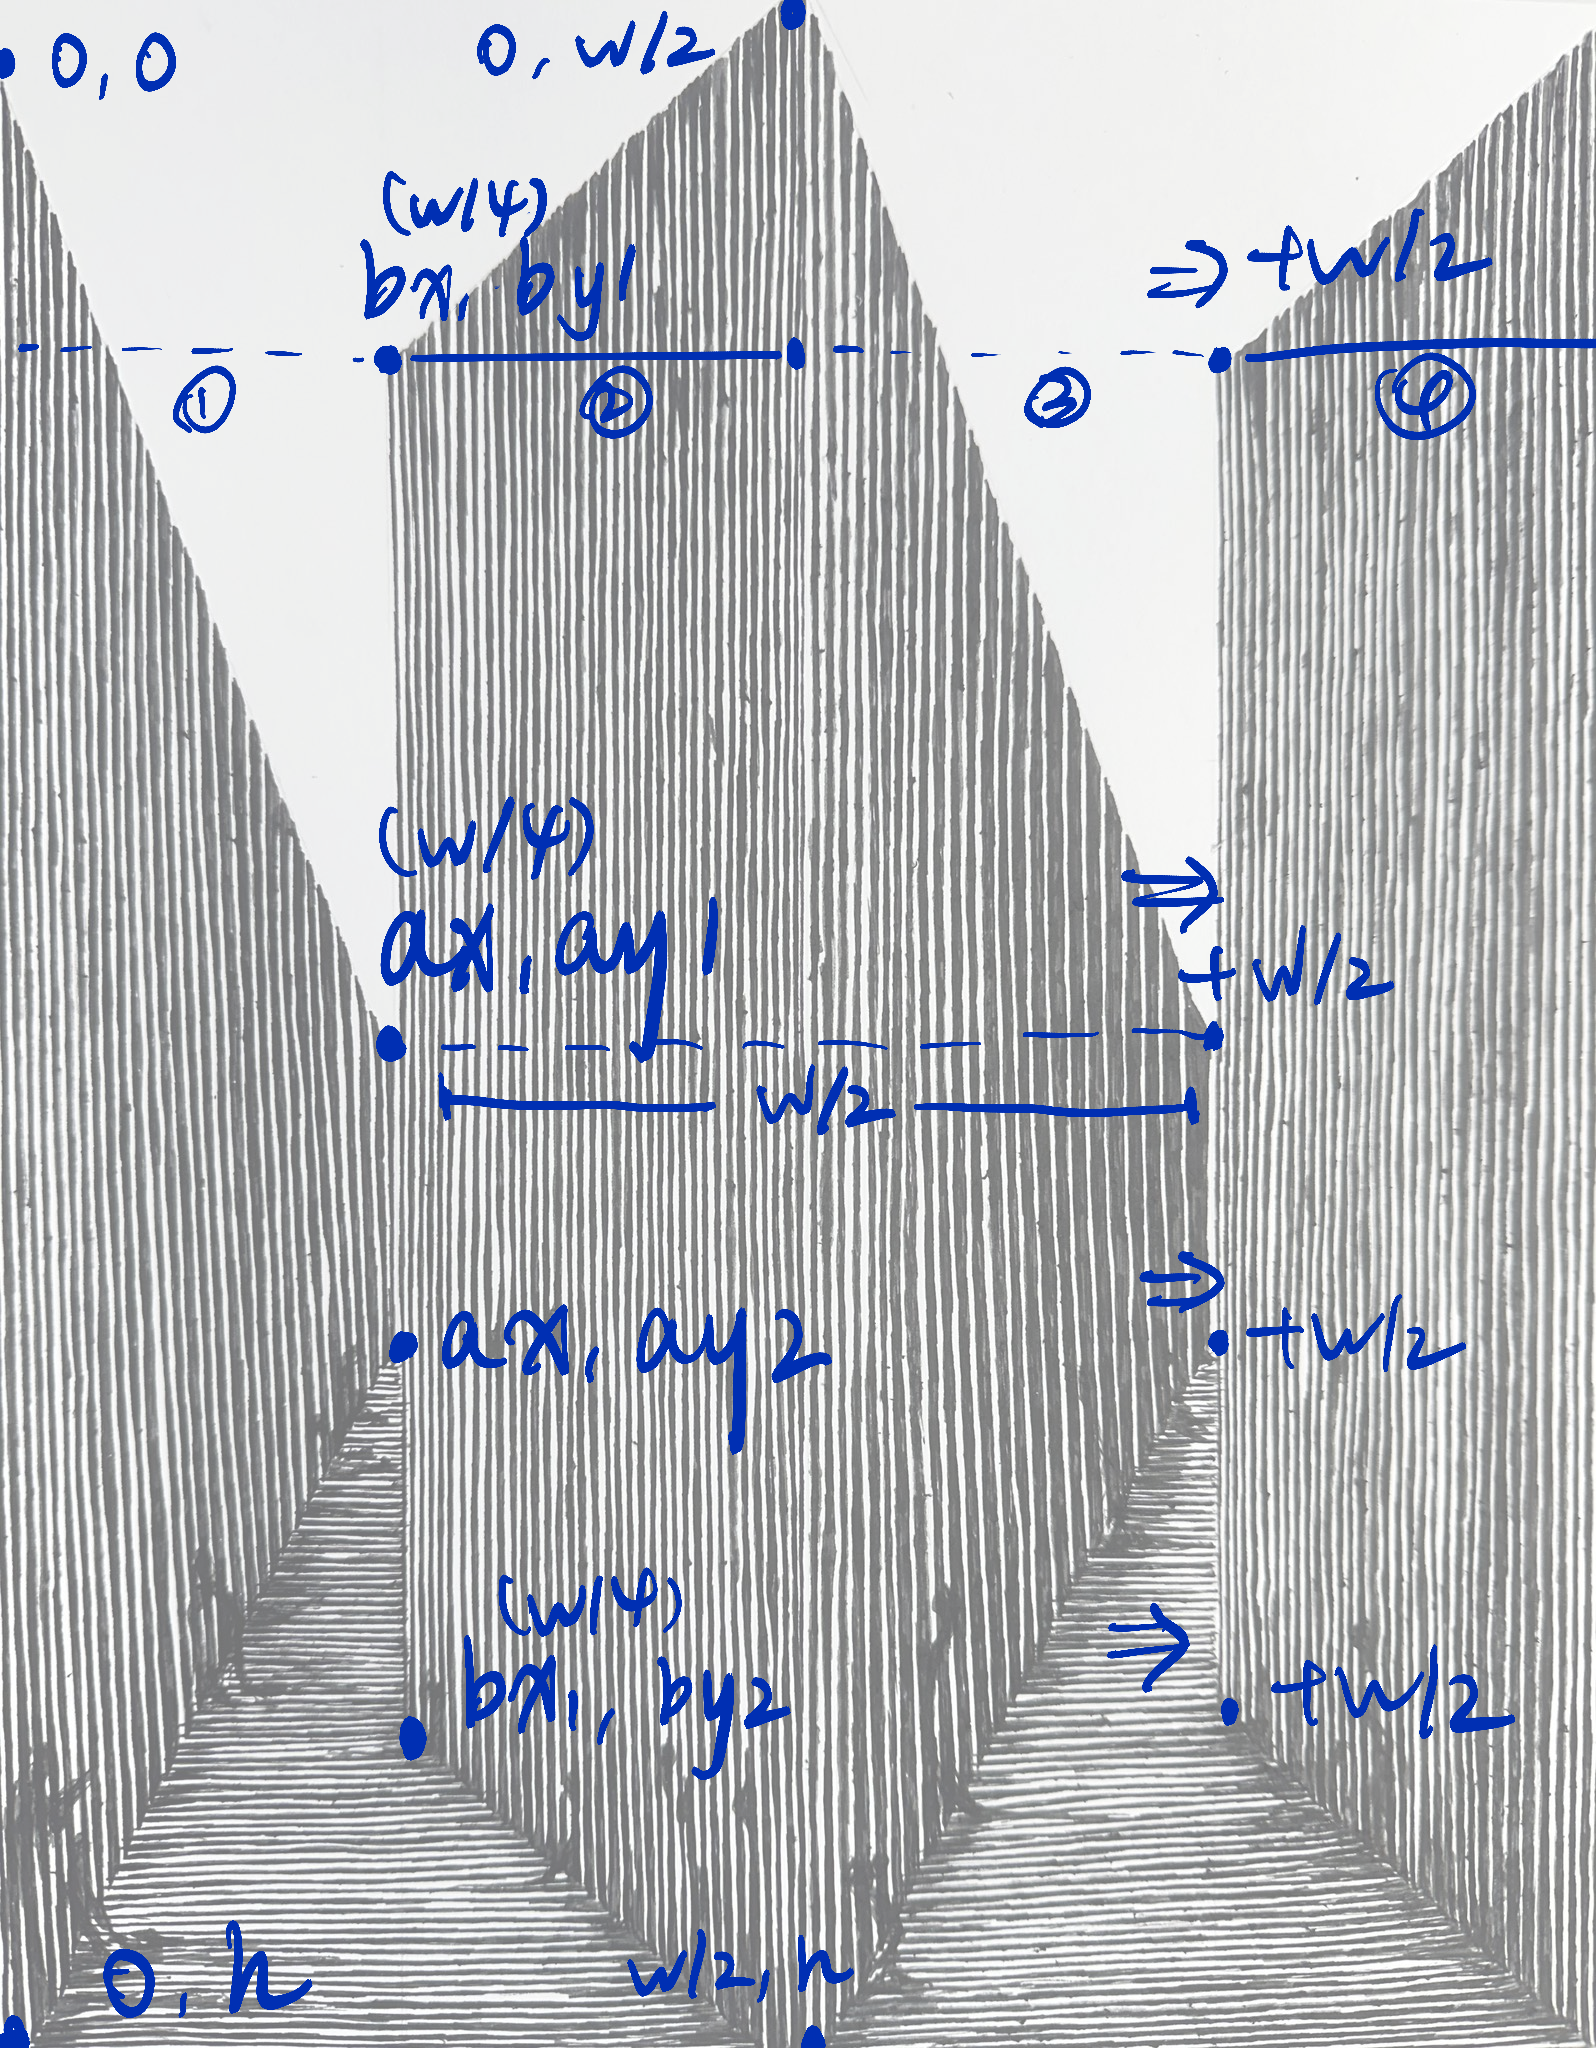 0, 0
0, w/2
(w/4)
bx, by1
⇒ +w/2
①
②
③
④
(w/4)
ax, ay1
⇒
+w/2
w/2
ax, ay2
⇒
+w/2
(w/4)
bx, by2
⇒
+w/2
0, h
w/2, h